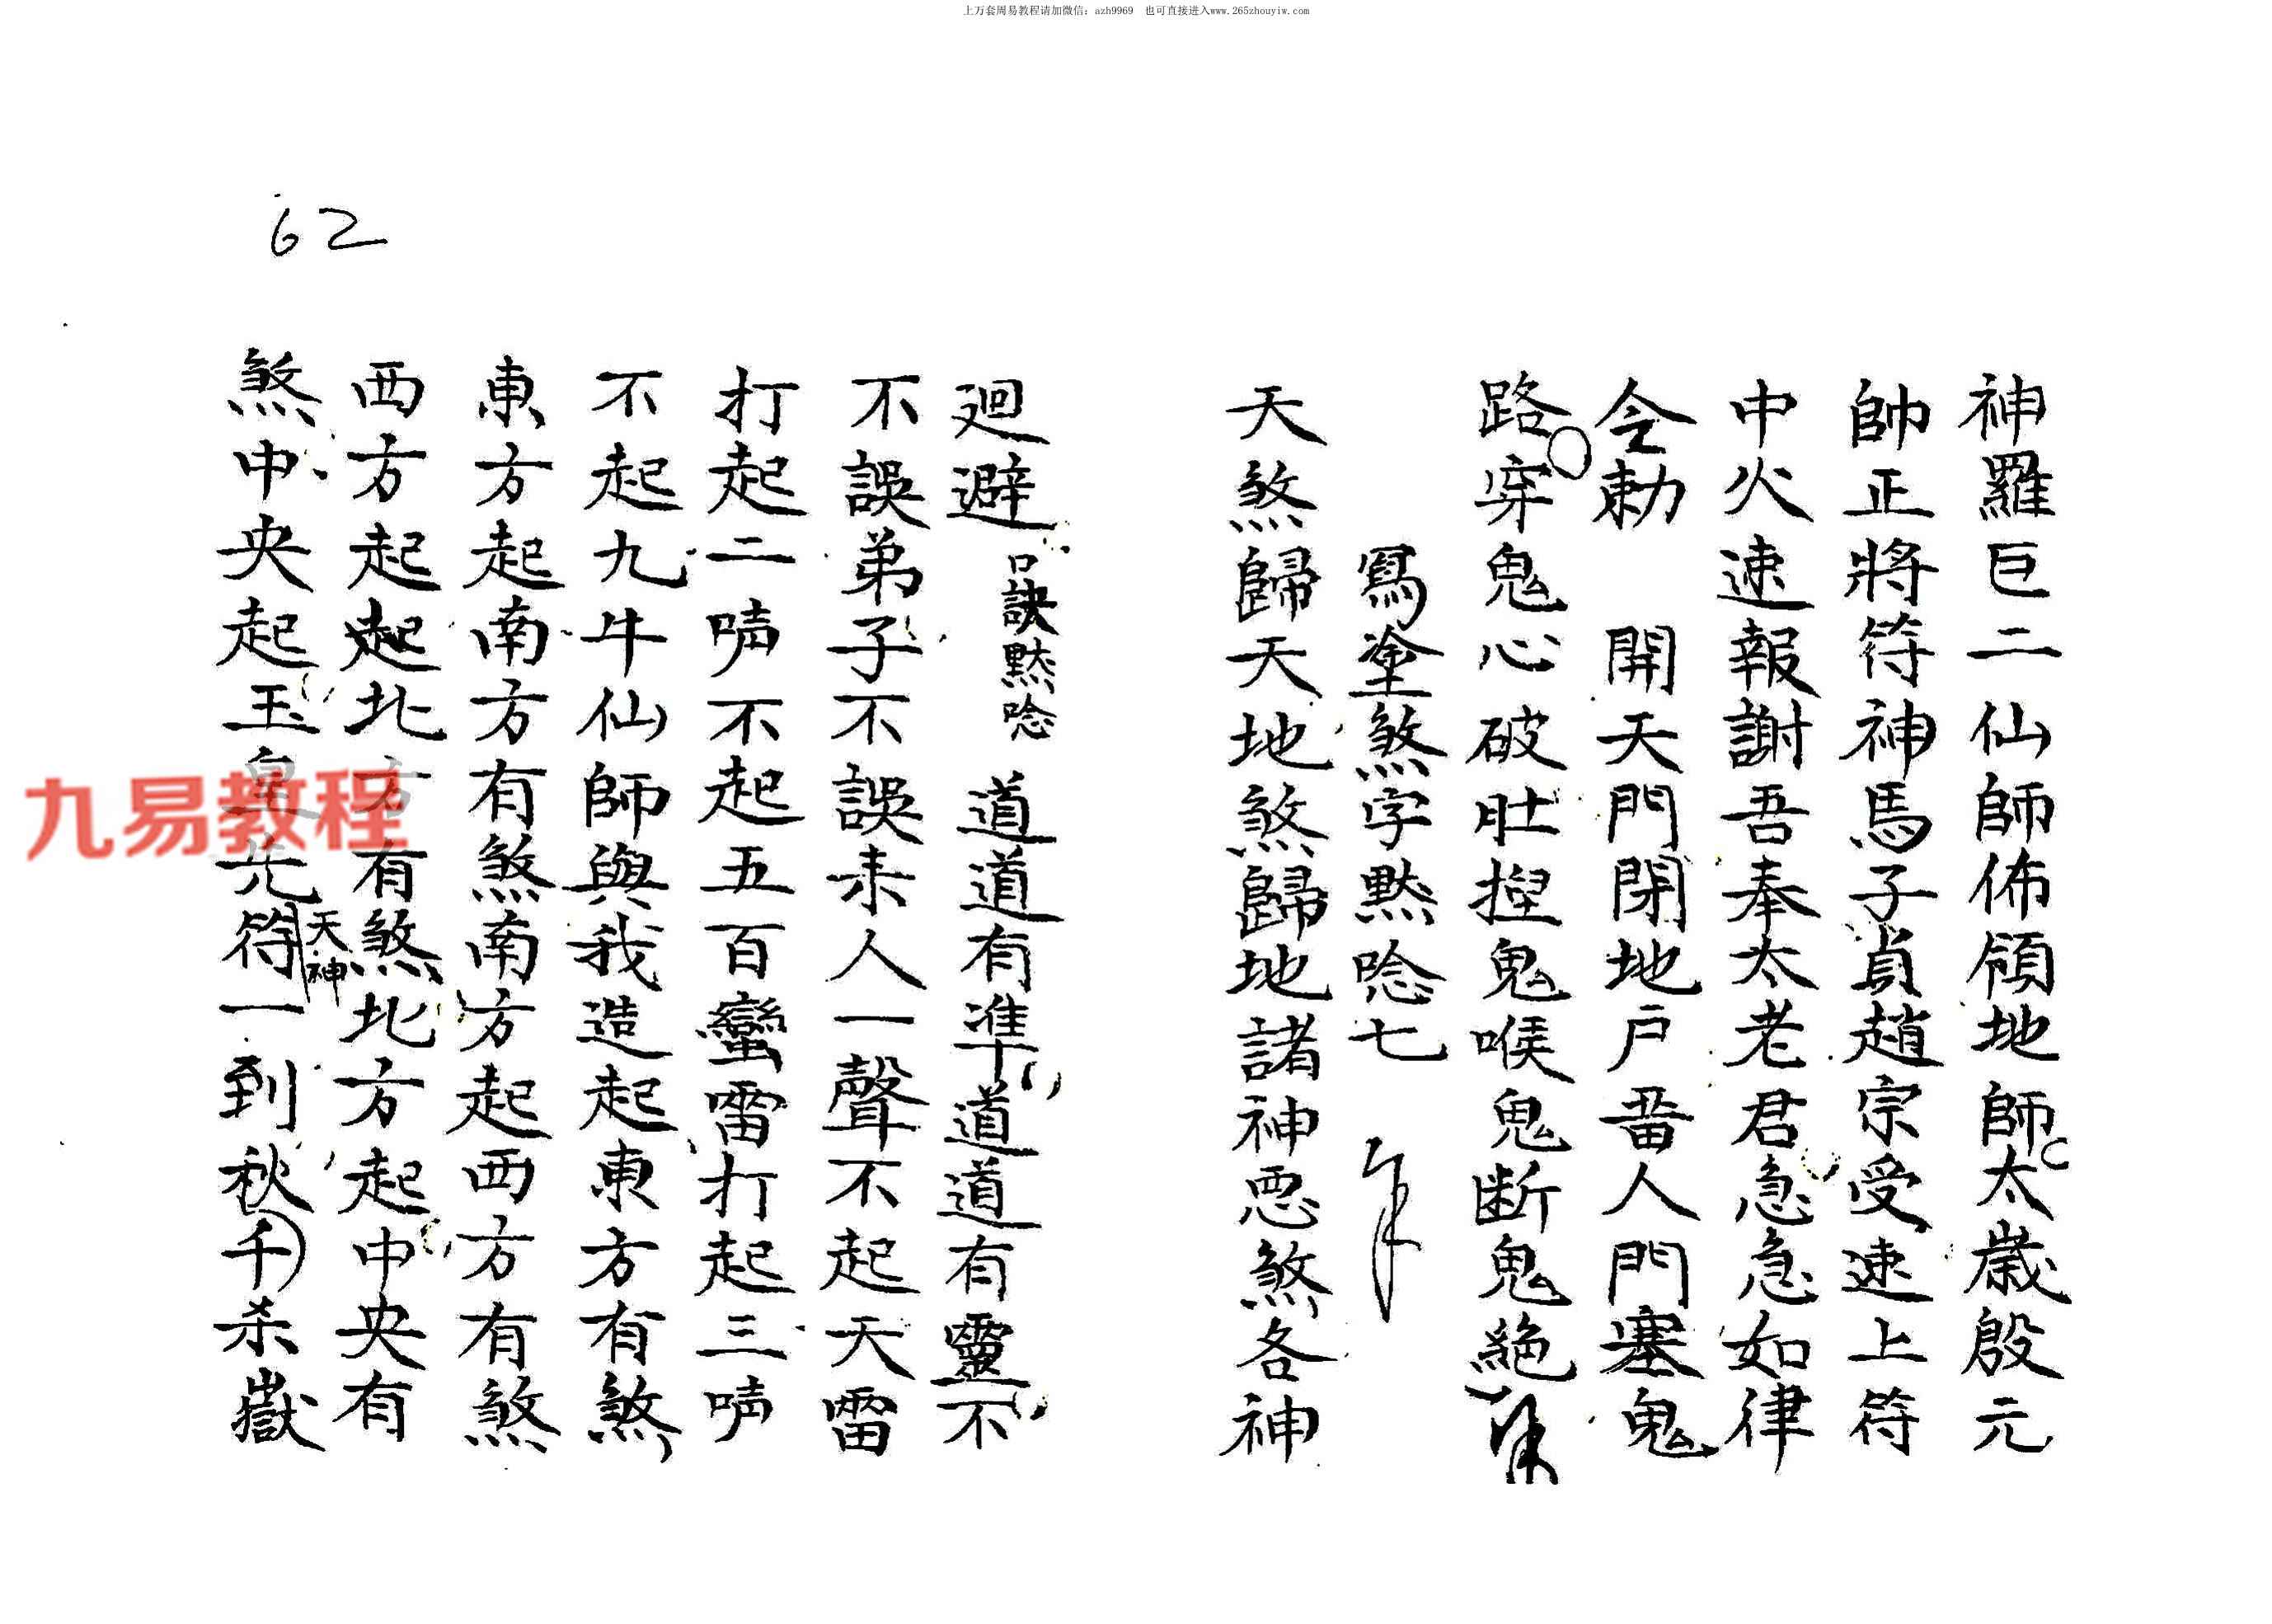 上万套周易教程请加微信：azh9969 也可直接进入www.265zhouyiw.com
62
神羅巨二仙師佈領地師太歲殷元
帥正將符神馬子貞趙宗受速上符
中火速報謝吾奉太老君急急如律
令勅 開天門閉地户畨人門塞鬼
路穿鬼心破肚捏鬼喉鬼断鬼絕
寫塗煞字黙唸七
天煞歸天地煞歸地諸神悪煞各神
迴避 口訣黙唸 道道有準道道有靈不
不誤弟子不誤未人一聲不起天雷
打起二啨不起五百蠻雷打起三啨
不起九牛仙師與我造起東方有煞
東方起南方有煞南方起西方有煞
西方起起北方有煞北方起中央有
煞中央起玉皇先符一到秋千杀嶽
天神
九易教程